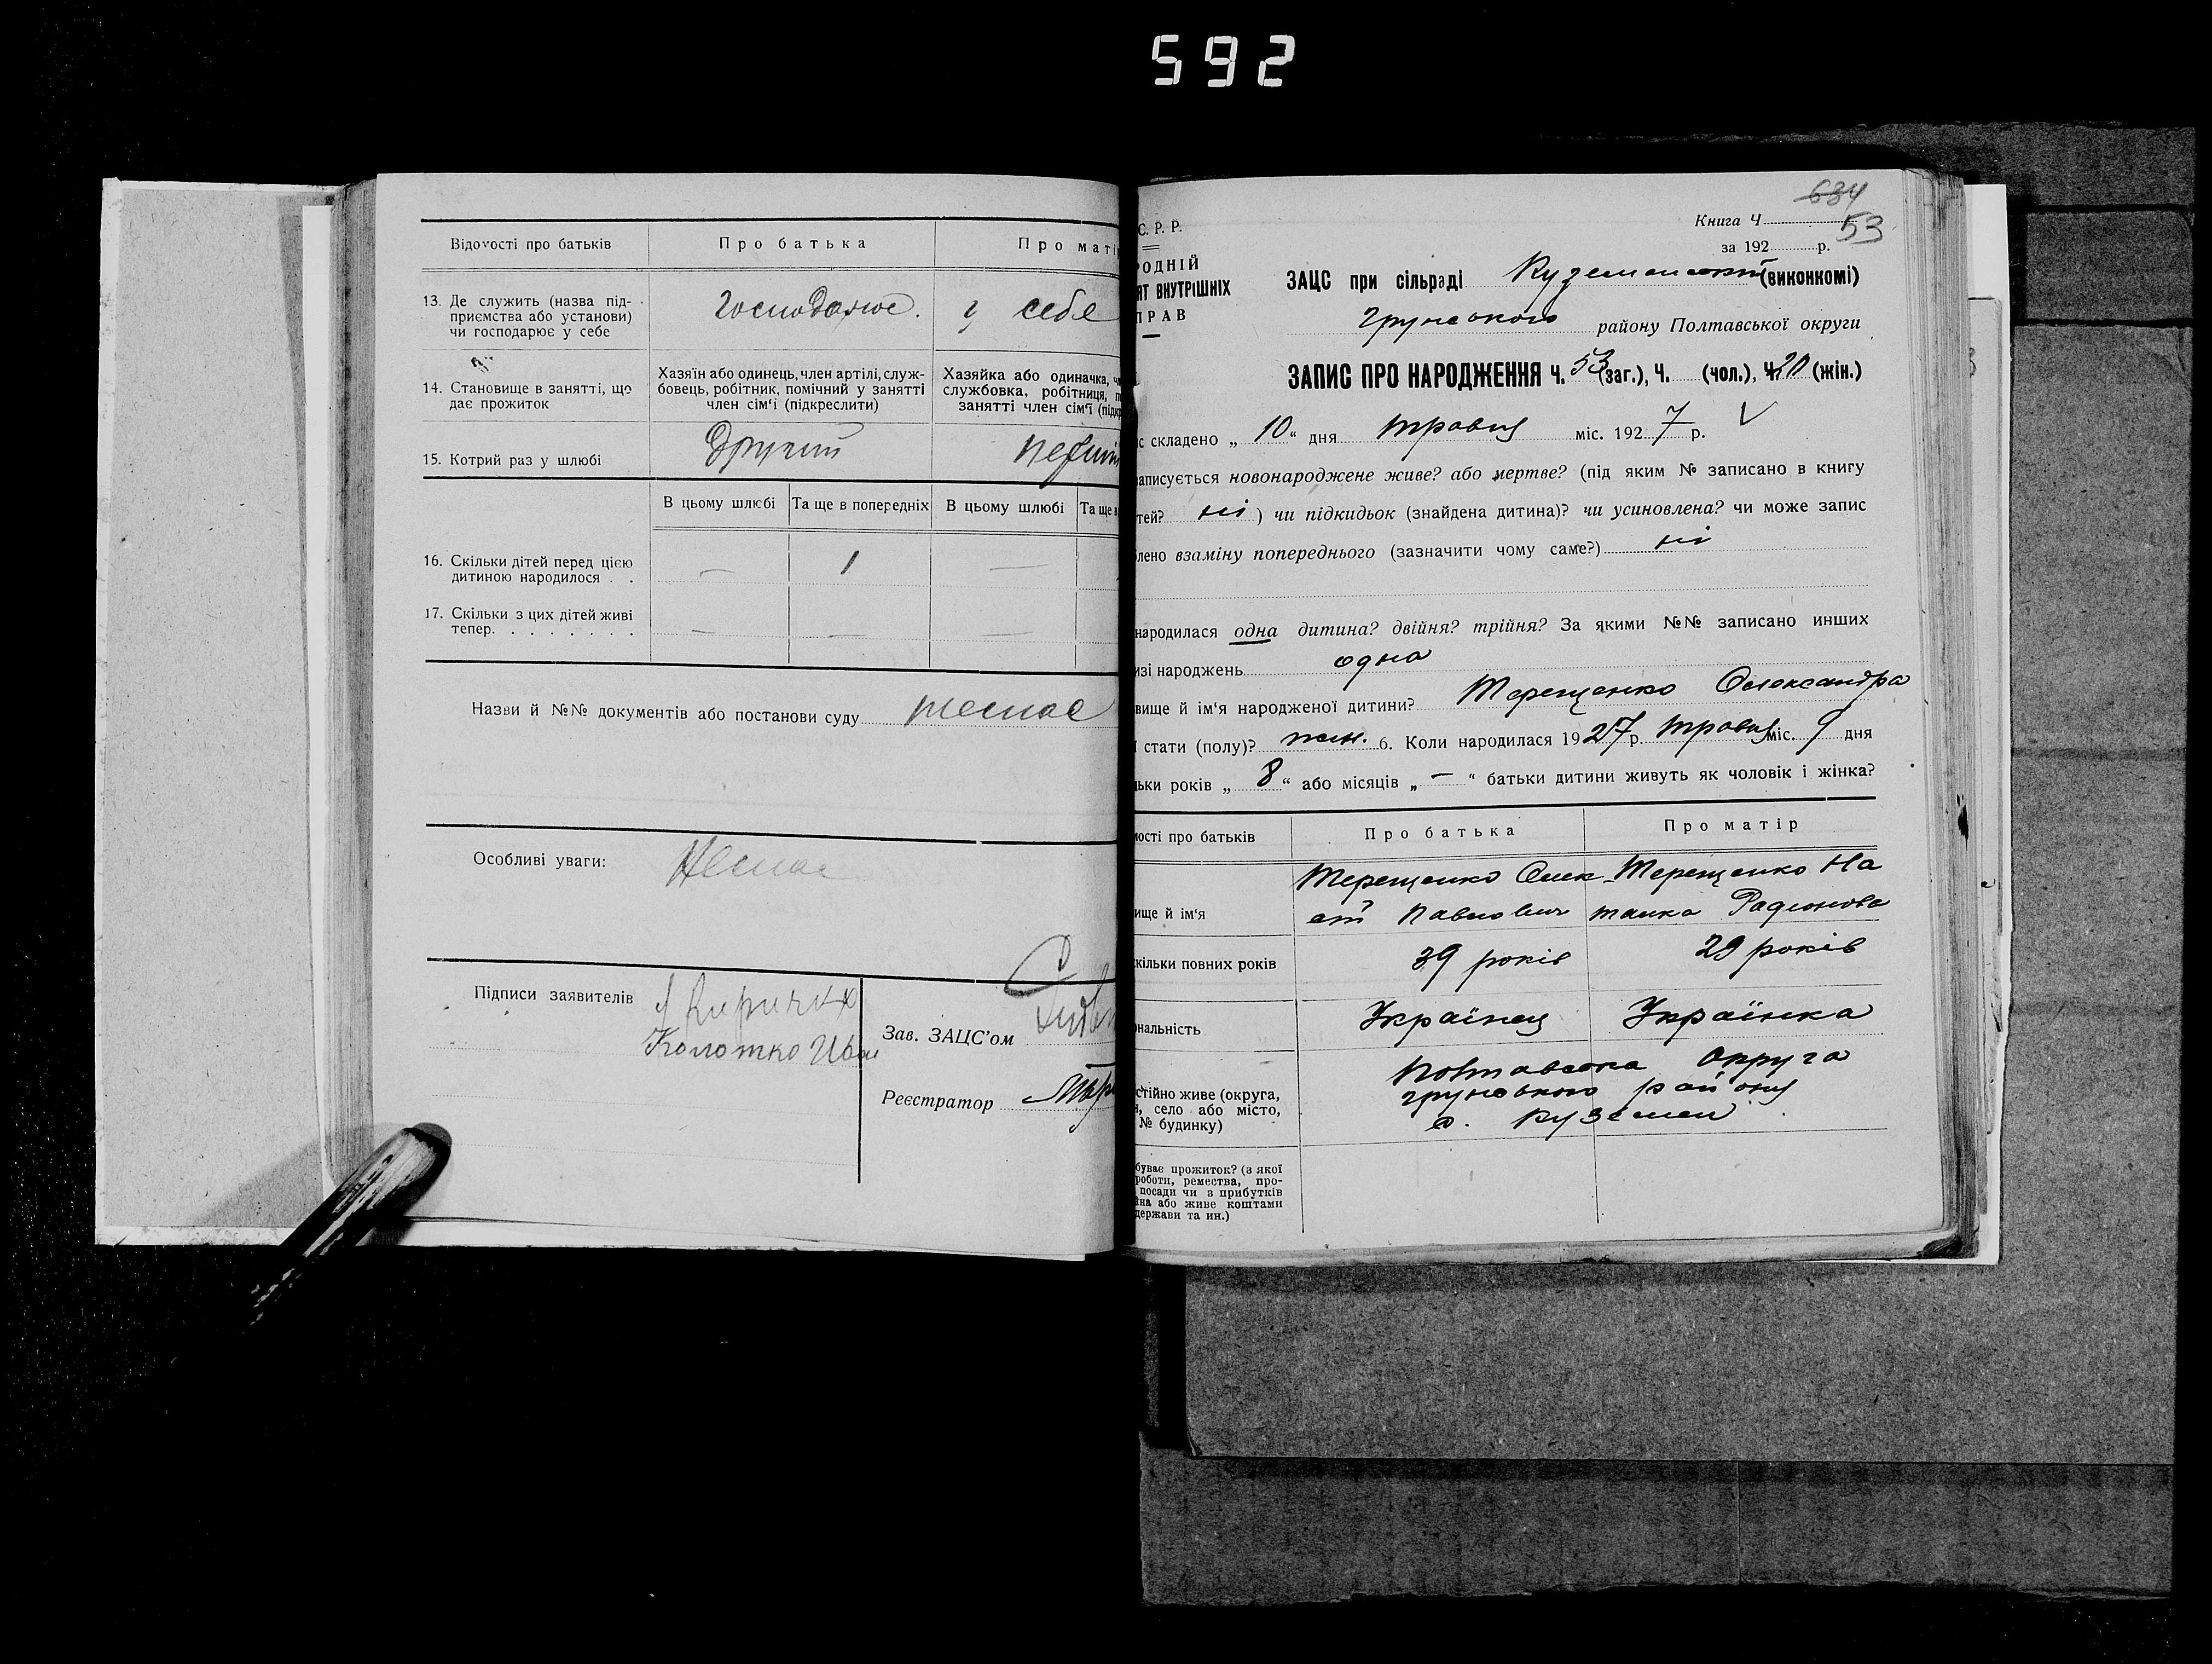 592
Відомості про батьків
Про батька
Про маті
13. Де служить (назва під-
приємства або установи)
чи господарює у себе
господарює. у себе
14. Становище в занятті, що
дає прожиток
Хазяїн або одинець, член артілі, служ-
бовець, робітник, помічний у занятті
член сім'ї (підкреслити)
Хазяйка або одиначка, ч
службовка, робітниця, п
занятті член сім'ї (підк
15. Котрий раз у шлюбі
Другий
В цьому шлюбі
Та ще в попередніх
В цьому шлюбі
Та ще в
16. Скільки дітей перед цією
дитиною народилося . .
— 1 —
17. Скільки з цих дітей живі
тепер. . . . . . . .
— — —
Назви й №№ документів або постанови суду
Особливі уваги: Немає
Підписи заявителів
Колотко Іван
Зав. ЗАЦС'ом
Реєстратор
634
Книга Ч. 53
за 192 р.
С. Р. Р.
РОДНІЙ
ЯТ ВНУТРІШНІХ
ПРАВ
ЗАЦС при сільраді (виконкомі)
Грунського району Полтавської округи
ЗАПИС ПРО НАРОДЖЕННЯ Ч. 53 (заг.), Ч. (чол.), Ч. 20 (жін.)
с складено „ 10 " дня травня міс. 1927 р. V
записується новонароджене живе? або мертве? (під яким № записано в книгу
тей? ні ) чи підкидьок (знайдена дитина)? чи усиновлена? чи може запис
лено взаміну попереднього (зазначити чому саме?) ні
народилася одна дитина? двійня? трійня? За якими №№ записано инших
изі народжень одна
вище й ім'я народженої дитини? Терещенко Олександра
ї стати (полу)? жін. 6. Коли народилася 1927 р. травня міс. 9 дня
льки років „ 8 " або місяців „ — " батьки дитини живуть як чоловік і жінка?
мості про батьків
Про батька
Про матір
вище й ім'я
Терещенко Олек
ст Павлович
Терещенко На
талка Радіонова
скільки повних років
39 років
29 років
ональність
Українец
Українка
стійно живе (округа,
н, село або місто,
№ будинку)
Полтавська Округа
грунського району
с. Куземен
буває прожиток? (з якої
роботи, ремества, про-
посади чи з прибутків
йна або живе коштами
держави та ин.)